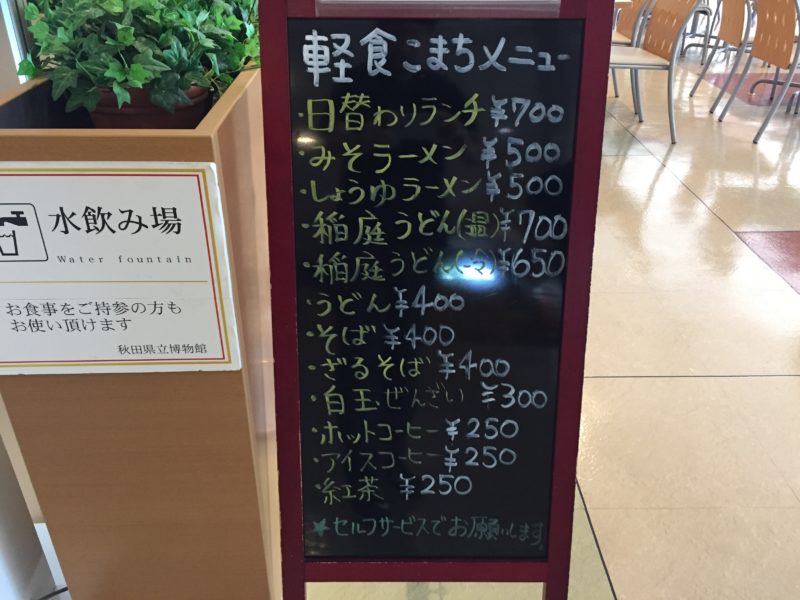 軽食こまちメニュー
・日替わりランチ ¥700
・みそラーメン ¥500
・しょうゆラーメン ¥500
・稲庭うどん(温)¥700
・稲庭うどん(冷)¥650
・うどん ¥400
・そば ¥400
・ざるそば ¥400
・白玉ぜんざい ¥300
・ホットコーヒー ¥250
・アイスコーヒー ¥250
・紅茶 ¥250
★セルフサービスでお願いします。
水飲み場
Water fountain
お食事をご持参の方も
お使い頂けます
秋田県立博物館